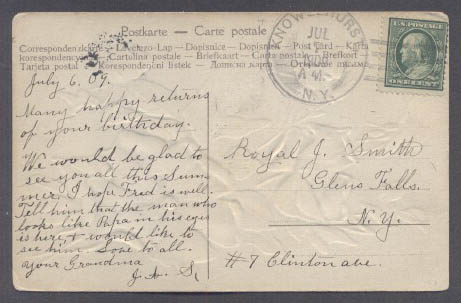 Postkarte — Carte postale
Correspondenzkarte — Levelezo-Lap — Dopisnice — Dopisnica — Post card — Karta
korespondencyjna — Cartolina postale — Briefkaart — Brefkort
Tarjeta postal — Korespondenční lístek
KNOWLHURST
JUL
A M
N.Y.
U.S. POSTAGE
ONE CENT
July 6. 09.
Many happy returns
of your birthday.
We would be glad to
see you all this Sum-
mer. I hope Fred is well.
Tell him that the man who
looks like Papa in his eyes
is here, & would like to
see him Love to all.
Your Grandma
J. A. S.
Royal J. Smith
Glens Falls,
N.Y.
# 7 Clinton ave.